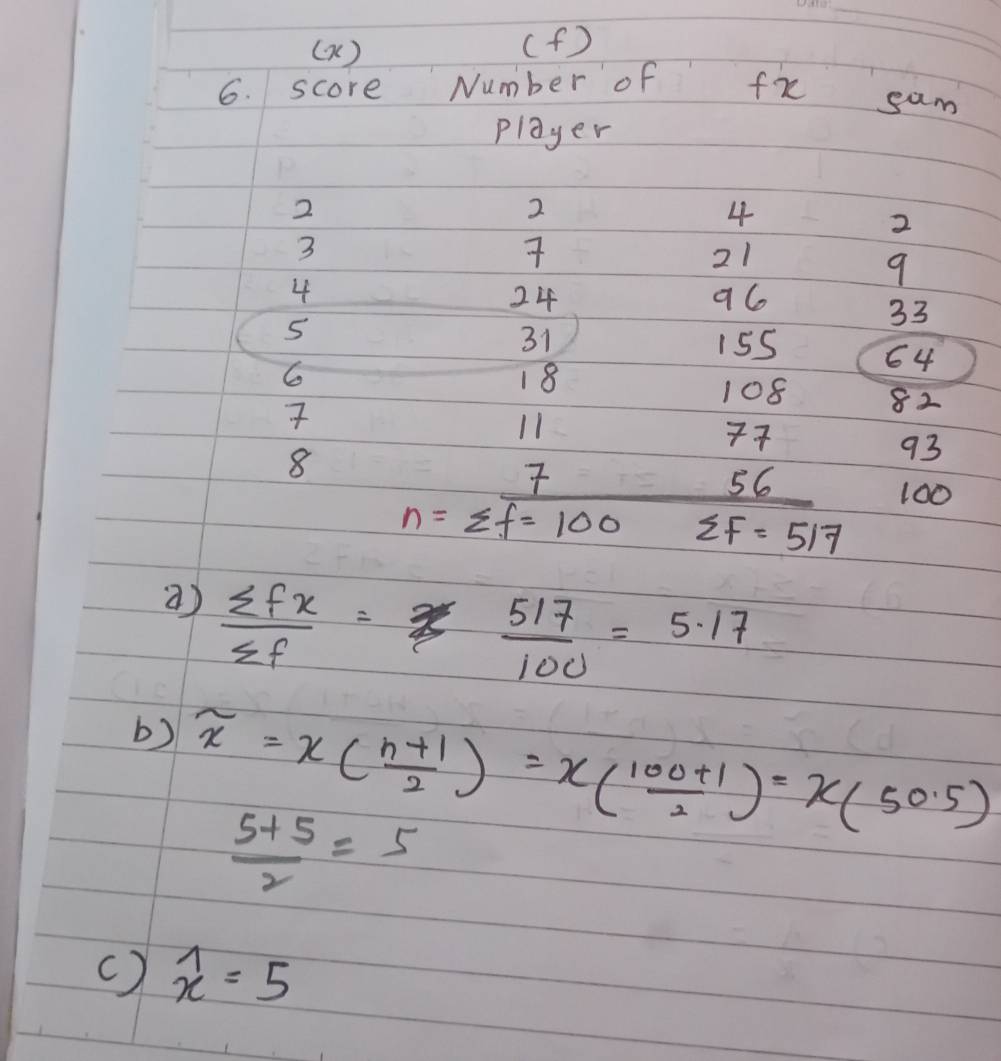 (x) (f)
6. score Number of fx sum
Player
2 2 4 2
3 7 21 9
4 24 96 33
5 31 155 64
6 18 108 82
7 11 77 93
8 7 56 100
n = Σf = 100 ΣF = 517
a) Σfx/Σf = 517/100 = 5.17
b) x̃ = x((n+1)/2) = x((100+1)/2) = x(50.5)
(5+5)/2 = 5
c) x̂ = 5